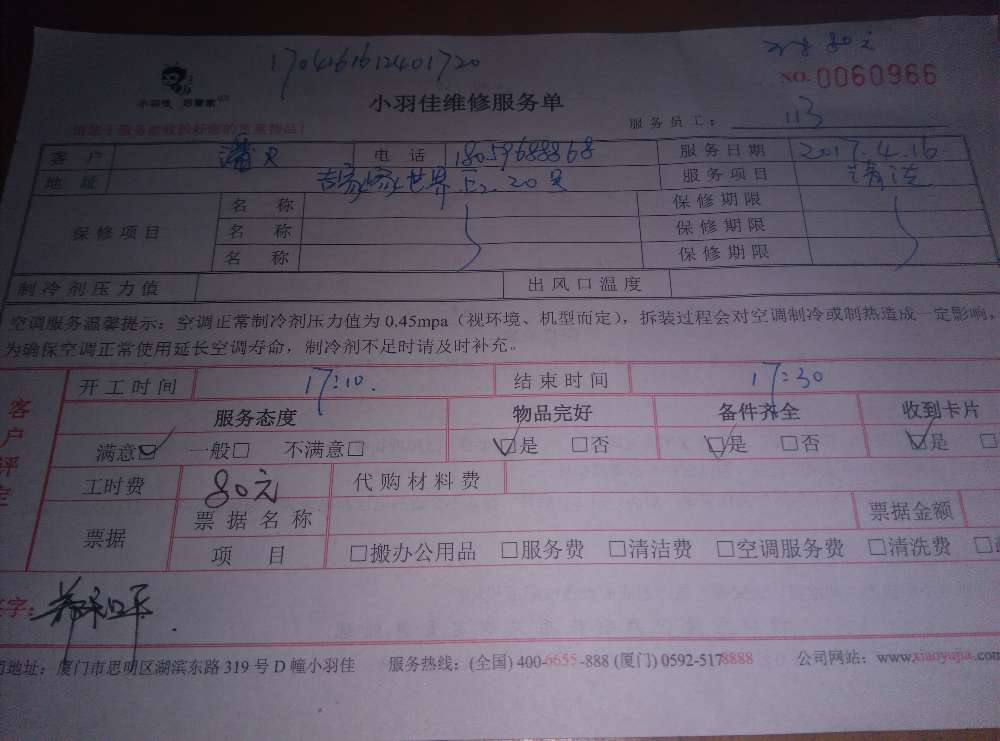 1704161612401720
80元
NO.0060966
小羽佳 好管家
小羽佳维修服务单
服务员工： 113
客户 电话 18059688868 服务日期 2017.4.16
地址 世界 52.20号 服务项目 清洗
保修项目 名称 保修期限
名称 保修期限
名称 保修期限
制冷剂压力值 出风口温度
空调服务温馨提示：空调正常制冷剂压力值为0.45mpa（视环境、机型而定），拆装过程会对空调制冷或制热造成一定影响，
为确保空调正常使用延长空调寿命，制冷剂不足时请及时补充。
客户评定
开工时间 17:10. 结束时间 17:30
服务态度 物品完好 备件齐全 收到卡片
满意☑ 一般□ 不满意□ ☑是 □否 ☑是 □否 ☑是 □
工时费 80元 代购材料费
票据 票据名称 票据金额
项目 □搬办公用品 □服务费 □清洁费 □空调服务费 □清洗费 □
字：
司地址：厦门市思明区湖滨东路319号D幢小羽佳 服务热线：(全国) 400-6655-888 (厦门) 0592-5178888 公司网站：www.xiaoyujia.com